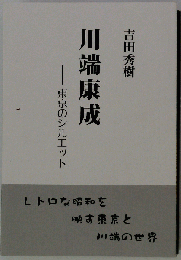 吉田秀樹
川端康成
――東京のシルエット
レトロな昭和を
映す東京と
川端の世界